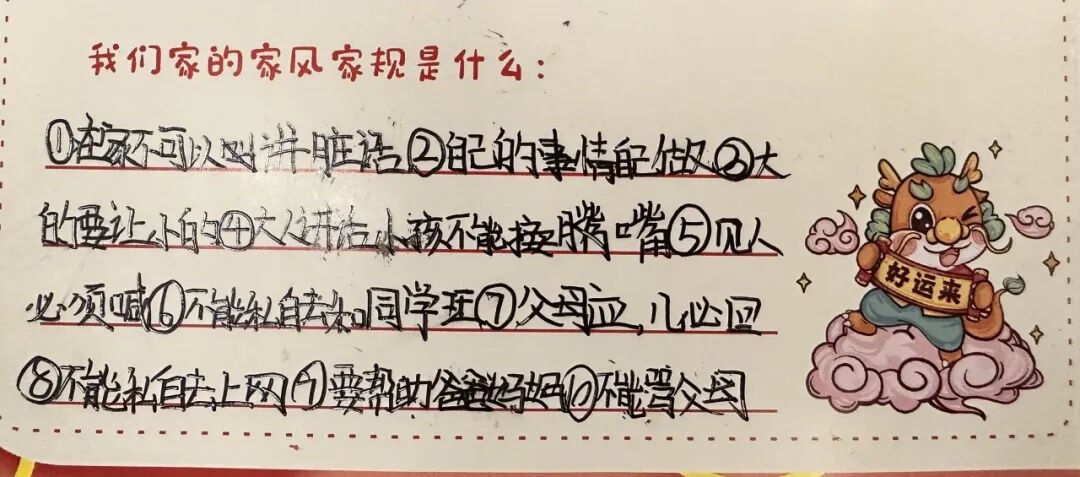 我们家的家风家规是什么：
①在家不可以讲脏话②自己的事情自己做③大
的要让小的④大人讲话小孩不能接嘴⑤见人
必须喊⑥不能私自去和同学玩⑦父母应,儿必回
⑧不能私自去上网⑨要帮助爸爸妈妈⑩不能骂父母
好运来